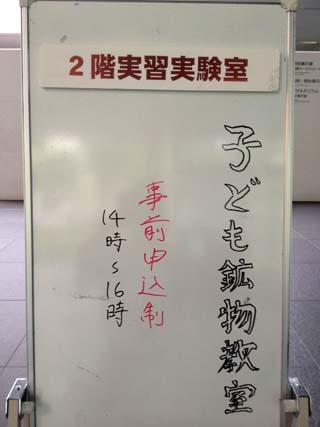 2階実習実験室
子ども鉱物教室
事前申込制
14時~16時